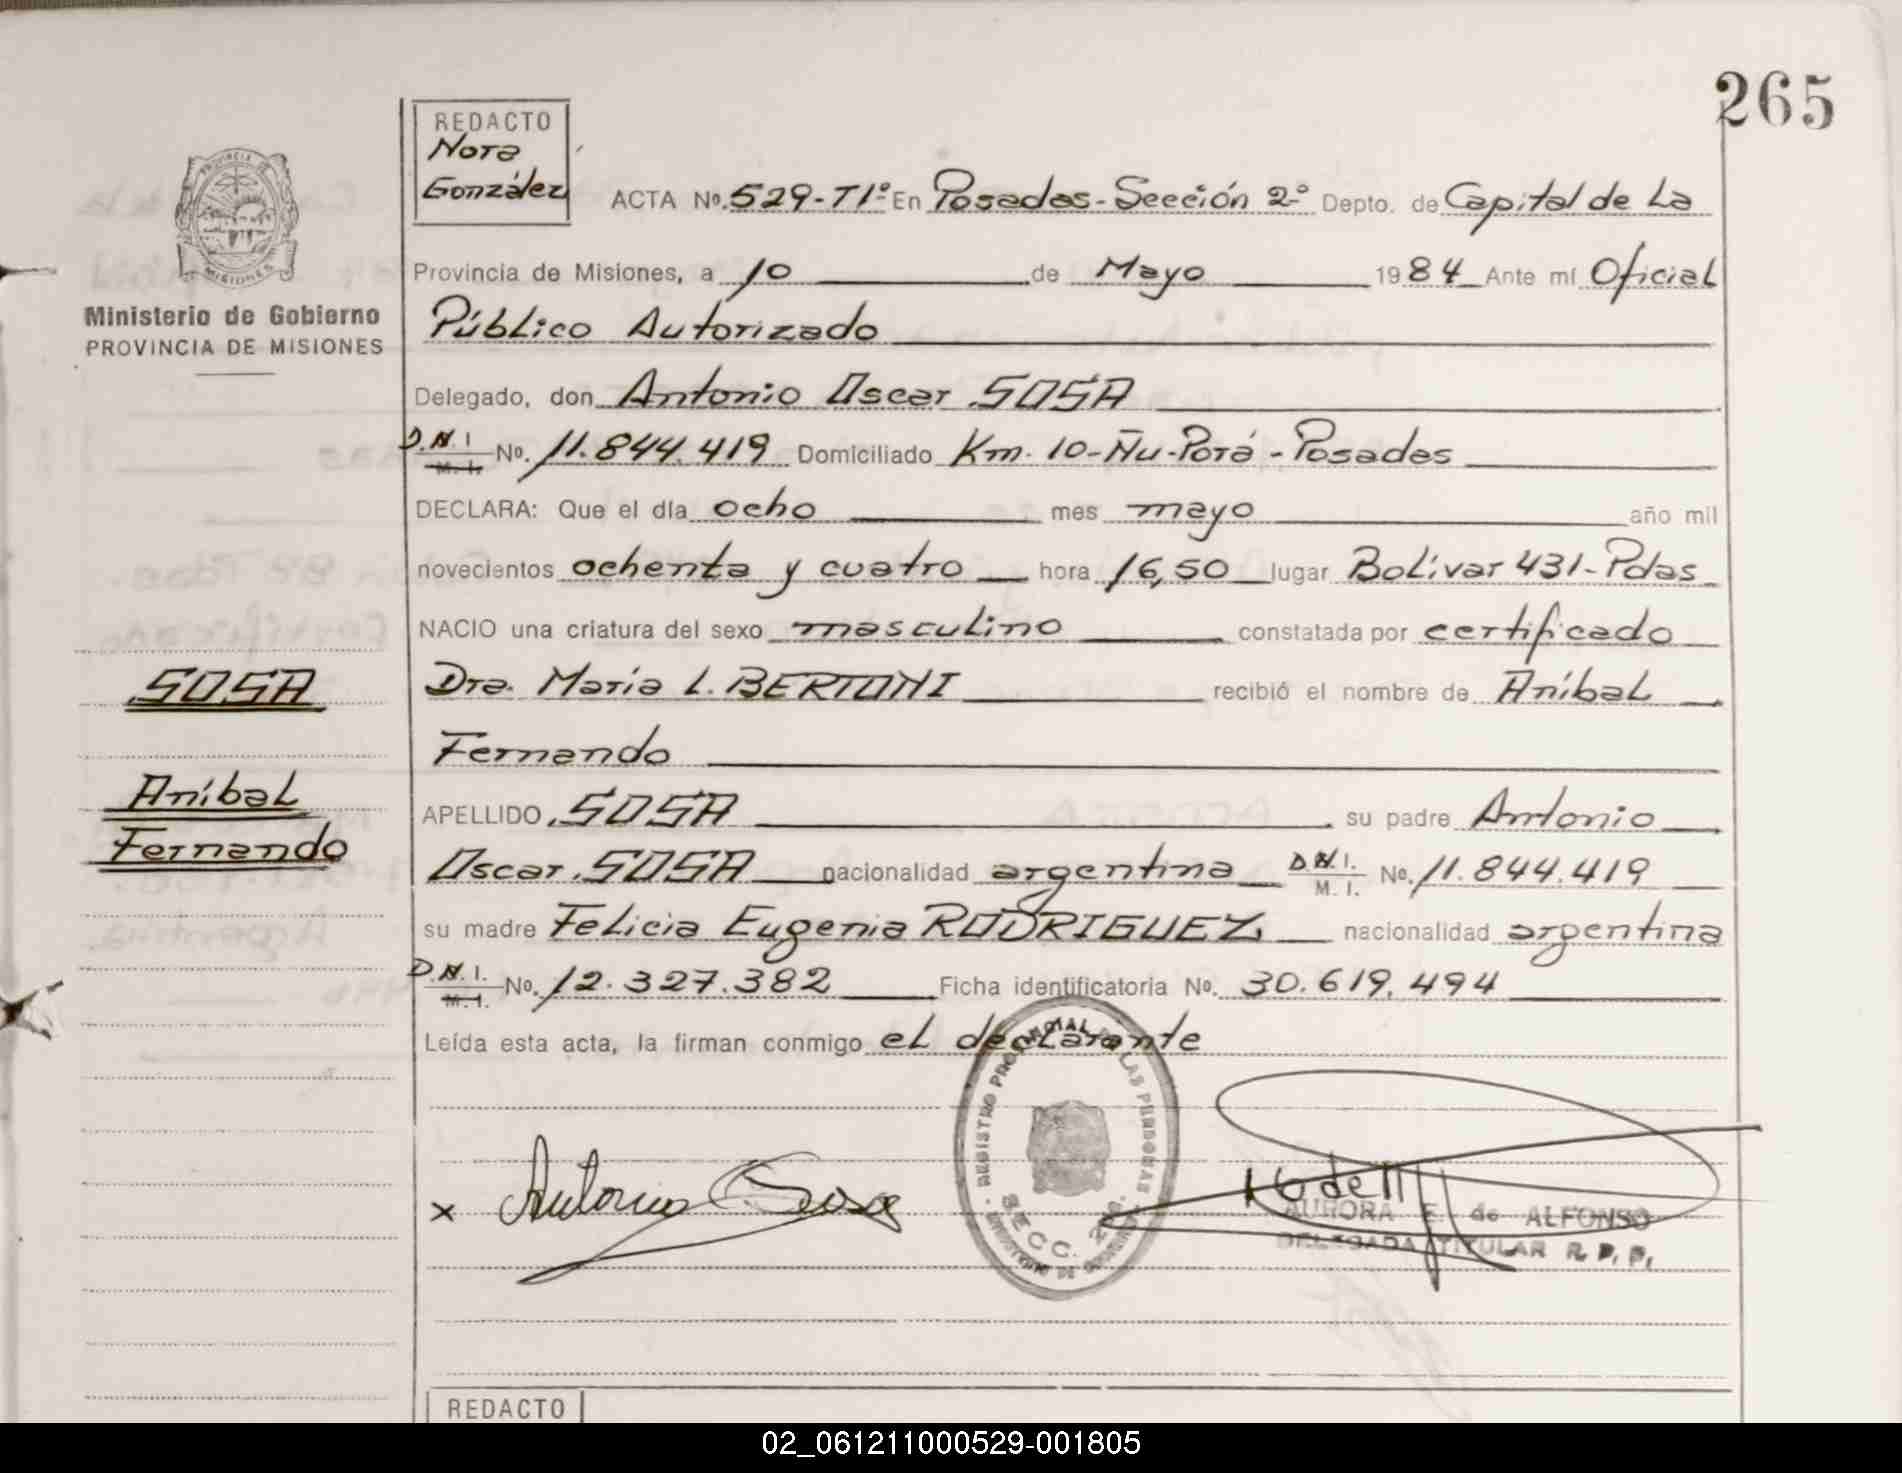 265
REDACTO
Nora
González
ACTA Nº. 529-T1º En Posadas-Sección 2º Depto. de Capital de La
Provincia de Misiones, a 10 de Mayo 1984 Ante mí Oficial
Público Autorizado
Delegado, don Antonio Oscar SOSA
D.N.I. M.I. Nº. 11.844.419 Domiciliado Km. 10-Ñu-Porá-Posadas
DECLARA: Que el día ocho mes mayo año mil
novecientos ochenta y cuatro hora 16,50 lugar Bolívar 431-Pdas
NACIO una criatura del sexo masculino constatada por certificado
Dra. María L. BERTONI recibió el nombre de Aníbal
Fernando
APELLIDO SOSA su padre Antonio
Oscar SOSA nacionalidad argentina D.N.I. M.I. Nº. 11.844.419
su madre Felicia Eugenia RODRIGUEZ nacionalidad argentina
D.N.I. M.I. Nº. 12.327.382 Ficha identificatoria Nº. 30.619.494
Leída esta acta, la firman conmigo el declarante
PROVINCIA DE MISIONES
Ministerio de Gobierno
PROVINCIA DE MISIONES
SOSA
Aníbal
Fernando
x Antonio Sosa
REGISTRO PROVINCIAL DE LAS PERSONAS
SECC. 2da.
MINISTERIO DE GOBIERNO
AURORA E. de ALFONSO
DELEGADA TITULAR R. P. P.
REDACTO
02_061211000529-001805